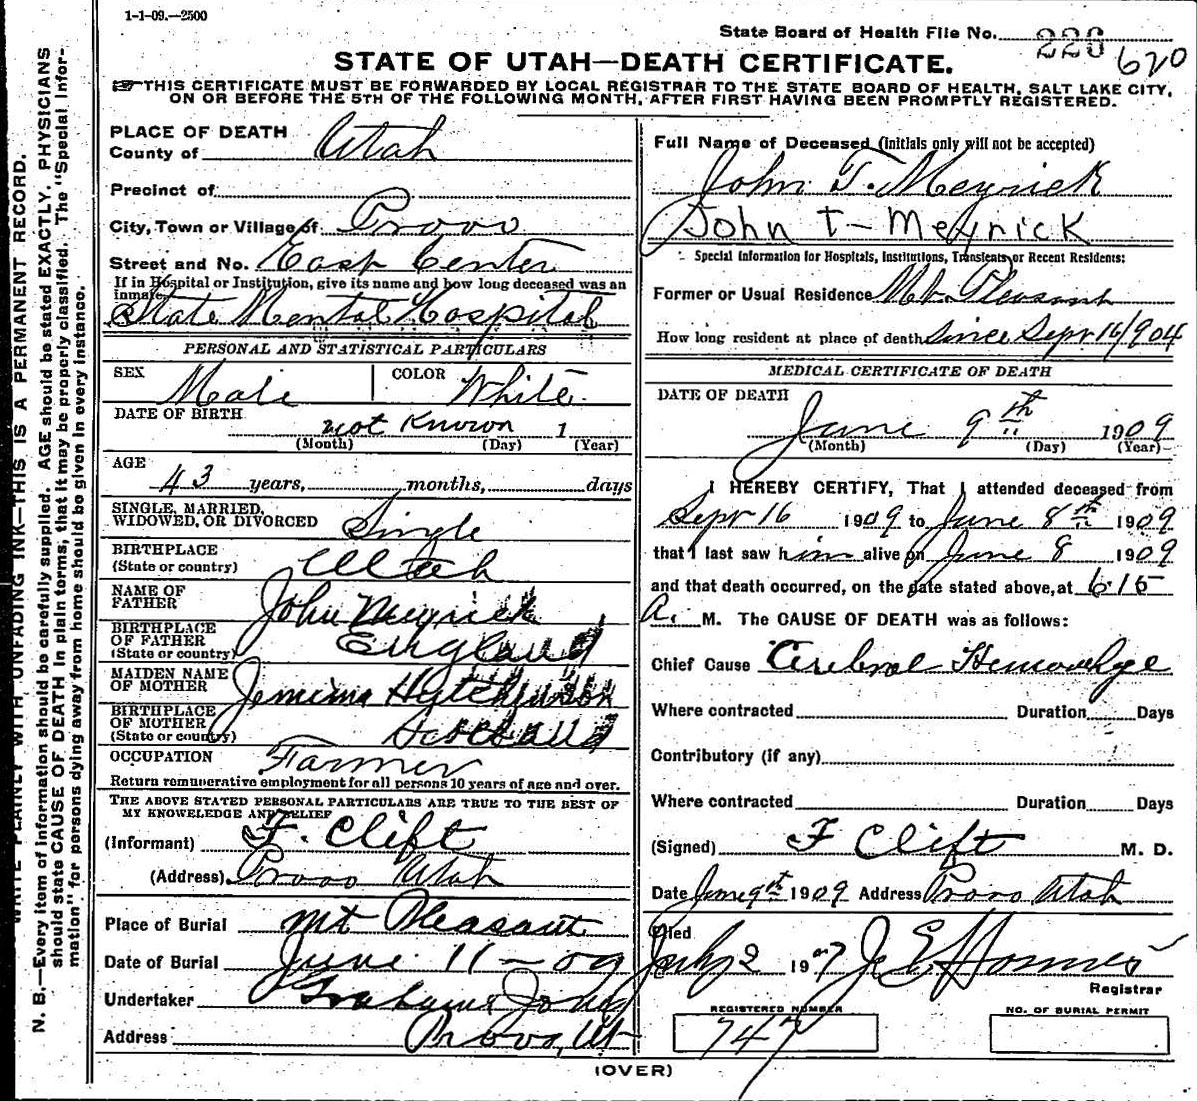 1-1-09.—2500
State Board of Health File No. 226 620
STATE OF UTAH—DEATH CERTIFICATE.
THIS CERTIFICATE MUST BE FORWARDED BY LOCAL REGISTRAR TO THE STATE BOARD OF HEALTH, SALT LAKE CITY,
ON OR BEFORE THE 5TH OF THE FOLLOWING MONTH, AFTER FIRST HAVING BEEN PROMPTLY REGISTERED.
PLACE OF DEATH
County of Utah
Precinct of
City, Town or Village of Provo
Street and No. East Center
If in Hospital or Institution, give its name and how long deceased was an
inmate.
State Mental Hospital
PERSONAL AND STATISTICAL PARTICULARS
SEX Male COLOR White
DATE OF BIRTH not Known 1
(Month) (Day) (Year)
AGE
43 years, months, days
SINGLE, MARRIED,
WIDOWED, OR DIVORCED Single
BIRTHPLACE
(State or country) Utah
NAME OF
FATHER John Meyrick
BIRTHPLACE
OF FATHER
(State or country) England
MAIDEN NAME
OF MOTHER Jemima Hutchinson
BIRTHPLACE
OF MOTHER
(State or country) Scotland
OCCUPATION Farmer
Return remunerative employment for all persons 10 years of age and over.
THE ABOVE STATED PERSONAL PARTICULARS ARE TRUE TO THE BEST OF
MY KNOWELEDGE AND BELIEF
(Informant) F. Clift
(Address) Provo Utah
Place of Burial Mt Pleasant
Date of Burial June 11-09
Undertaker
Address Provo, Ut
Full Name of Deceased (Initials only will not be accepted)
John T. Meyrick
John T- Meyrick
Special Information for Hospitals, Institutions, Transients or Recent Residents:
Former or Usual Residence Mt. Pleasant
How long resident at place of death Since Sept 16/904
MEDICAL CERTIFICATE OF DEATH
DATE OF DEATH
June 9th 1909
(Month) (Day) (Year)
I HEREBY CERTIFY, That I attended deceased from
Sept 16 1909 to June 8th 1909
that I last saw him alive on June 8 1909
and that death occurred, on the date stated above, at 6.15
A. M. The CAUSE OF DEATH was as follows:
Chief Cause Cerebral Hemorrhage
Where contracted Duration Days
Contributory (if any)
Where contracted Duration Days
(Signed) F Clift M. D.
Date June 9th 1909 Address Provo Utah
Filed
July 2 190 J E Homes
Registrar
REGISTERED NUMBER
747
NO. OF BURIAL PERMIT
(OVER)
WRITE PLAINLY WITH UNFADING INK—THIS IS A PERMANENT RECORD.
N. B.—Every item of information should be carefully supplied. AGE should be stated EXACTLY. PHYSICIANS
should state CAUSE OF DEATH in plain terms, that it may be properly classified. The "Special Infor-
mation" for persons dying away from home should be given in every instance.